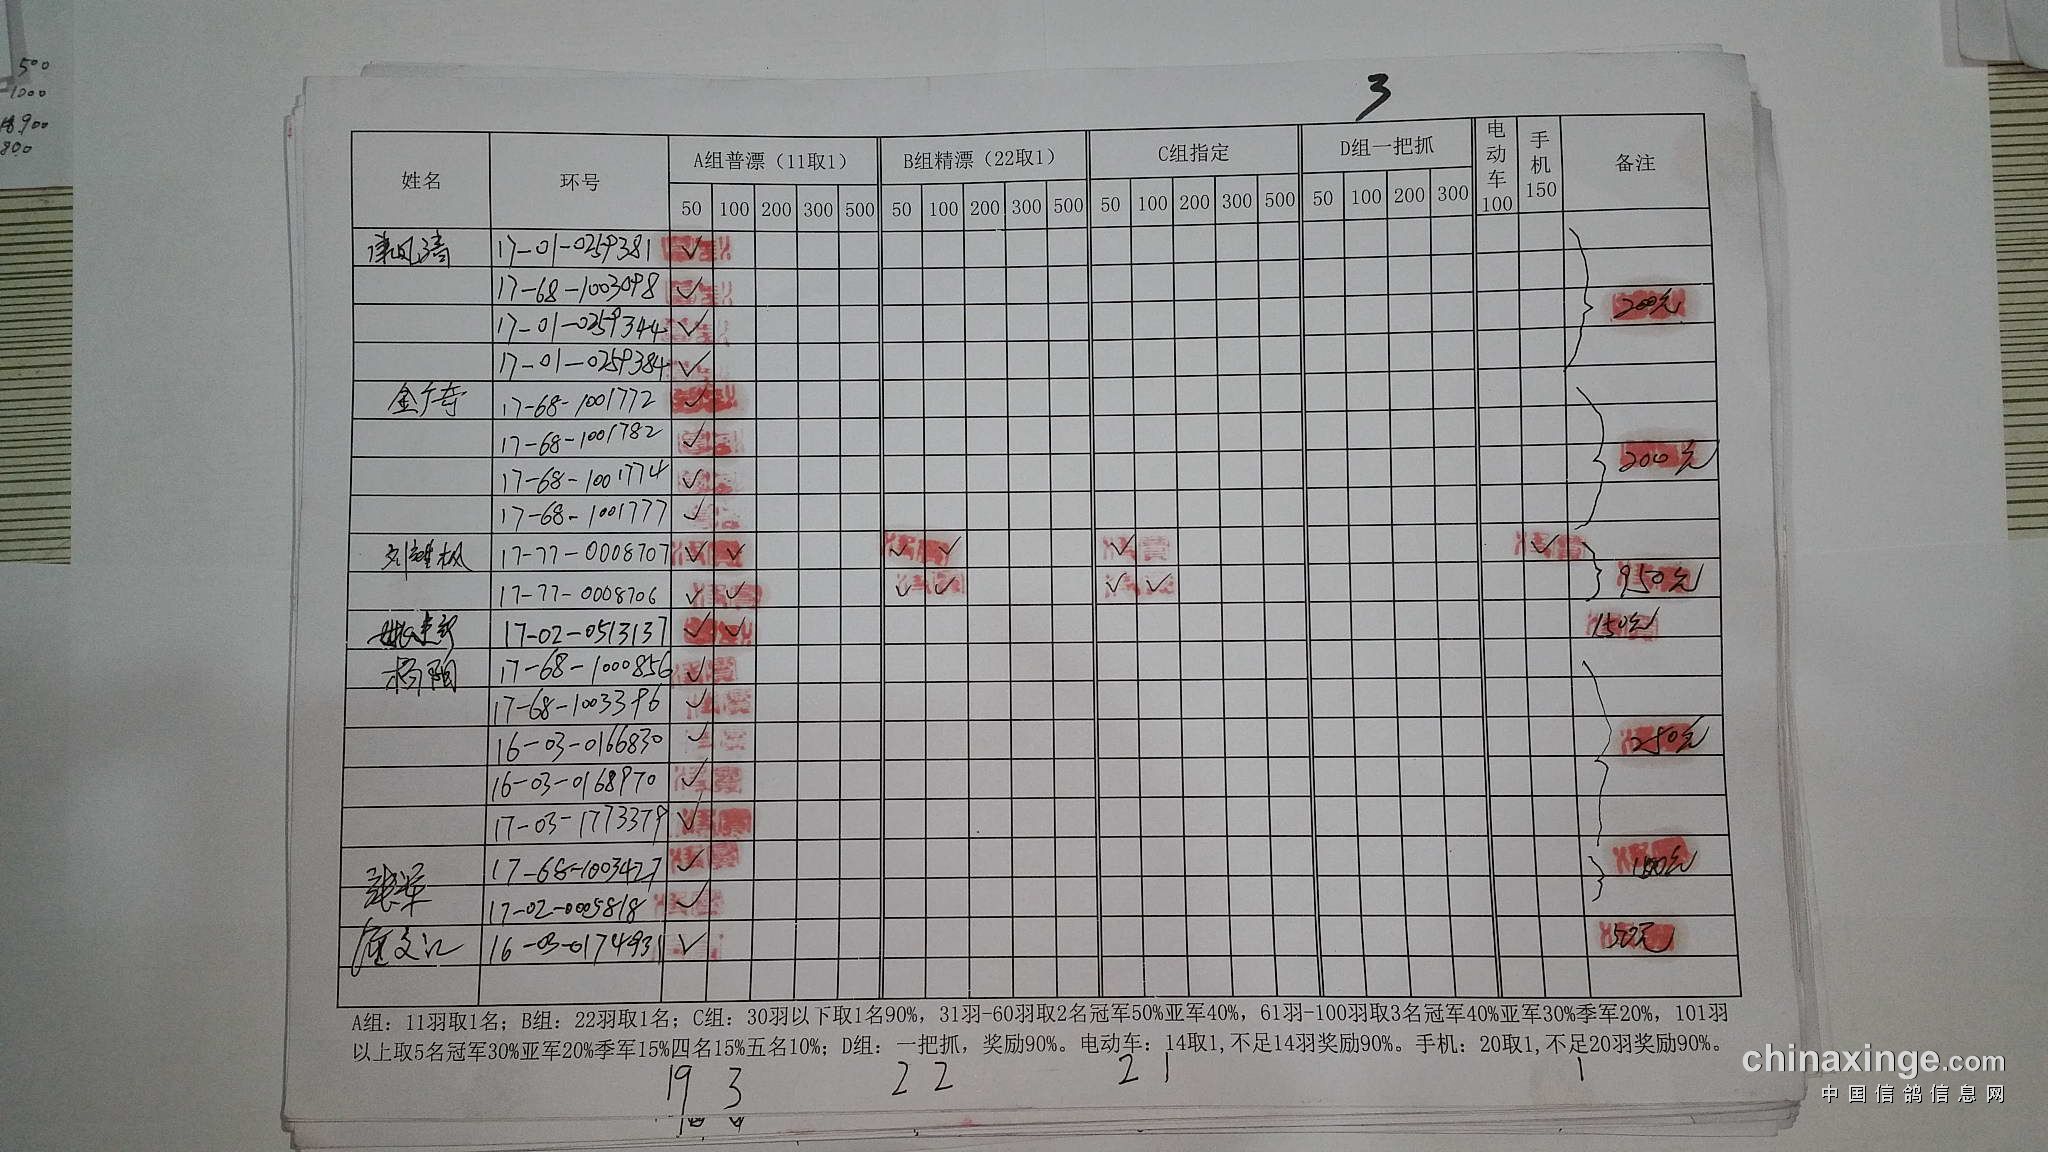 500
1000
18900
800
3
姓名 环号 A组普漂（11取1） B组精漂（22取1） C组指定 D组一把抓 电动车100 手机150 备注
50 100 200 300 500 50 100 200 300 500 50 100 200 300 500 50 100 200 300
17-01-0259381 ✓
17-68-1003098 ✓ 200元
17-01-0259344 ✓
17-01-0259384 ✓
17-68-1001772 ✓
17-68-1001782 ✓ 200元
17-68-1001774 ✓
17-68-1001777 ✓
17-77-0008707 ✓ ✓ ✓ ✓ ✓ ✓
17-77-0008706 ✓ ✓ ✓ ✓ ✓ ✓ 950元
17-02-0513137 ✓ ✓ 150元
杨阳 17-68-1000856 ✓
17-68-1003396 ✓
16-03-0166830 ✓ 250元
16-03-0168970 ✓
17-03-1773379 ✓
17-68-1003427 ✓ 100元
17-02-0005818 ✓
16-03-0174931 ✓ 50元
A组：11羽取1名；B组：22羽取1名；C组：30羽以下取1名90%，31羽-60羽取2名冠军50%亚军40%，61羽-100羽取3名冠军40%亚军30%季军20%，101羽
以上取5名冠军30%亚军20%季军15%四名15%五名10%；D组：一把抓，奖励90%。电动车：14取1,不足14羽奖励90%。手机：20取1,不足20羽奖励90%。
19 3 2 2 2 1 1
chinaxinge.com
中国信鸽信息网